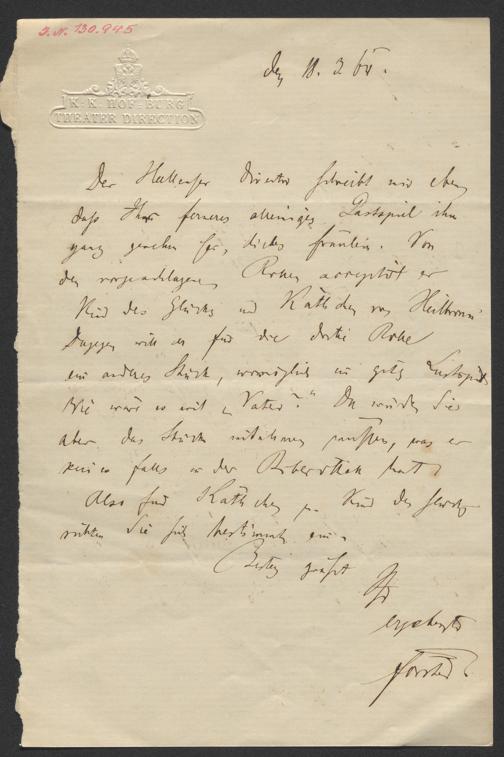 J.N. 130.945
K. K. HOF-BURG
THEATER DIRECTION
den 18. 3.
Der Director schreibt mir eben
daß Ihr ferneres alleiniges Gastspiel ihm
ganz genehm sei, liebes Fräulein. Von
den vorgeschlagenen Rollen acceptirt er
Kind des Glücks und Käthchen von Heilbronn.
Dagegen will er für die dritte Rolle
ein anderes Stück, womöglich ein Lustspiel
Wie wäre es mit „Vater“? Da würden Sie
aber das Stück mitnehmen müssen, was er
keines falls in der Bibliothek hat.
Also für Käthchen u. Kind des Glücks
richten Sie sich bestimmt ein.
Bestens grüßt
Ihr
ergebenster
Förster